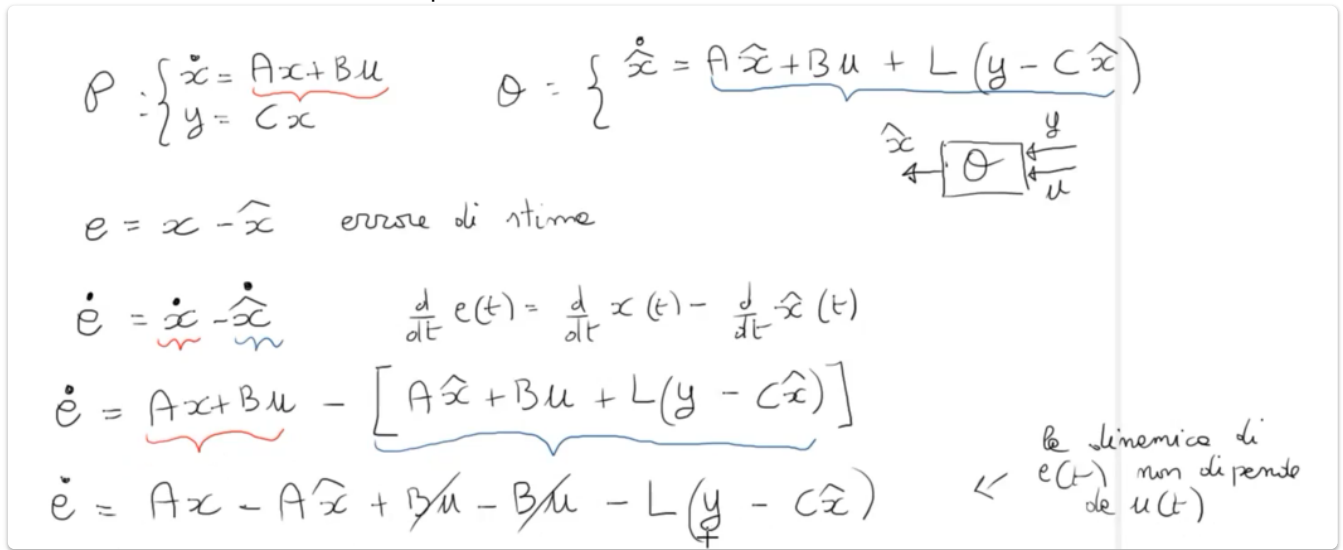 P : { ẋ = Ax + Bu
y = Cx
O = { x̂̇ = Ax̂ + Bu + L(y - Cx̂)
x̂ O y
u
e = x - x̂ errore di stima
ė = ẋ - x̂̇ d/dt e(t) = d/dt x(t) - d/dt x̂(t)
ė = Ax + Bu - [Ax̂ + Bu + L(y - Cx̂)]
ė = Ax - Ax̂ + Bu - Bu - L(y - Cx̂)
← la dinamica di
e(t) non dipende
da u(t)